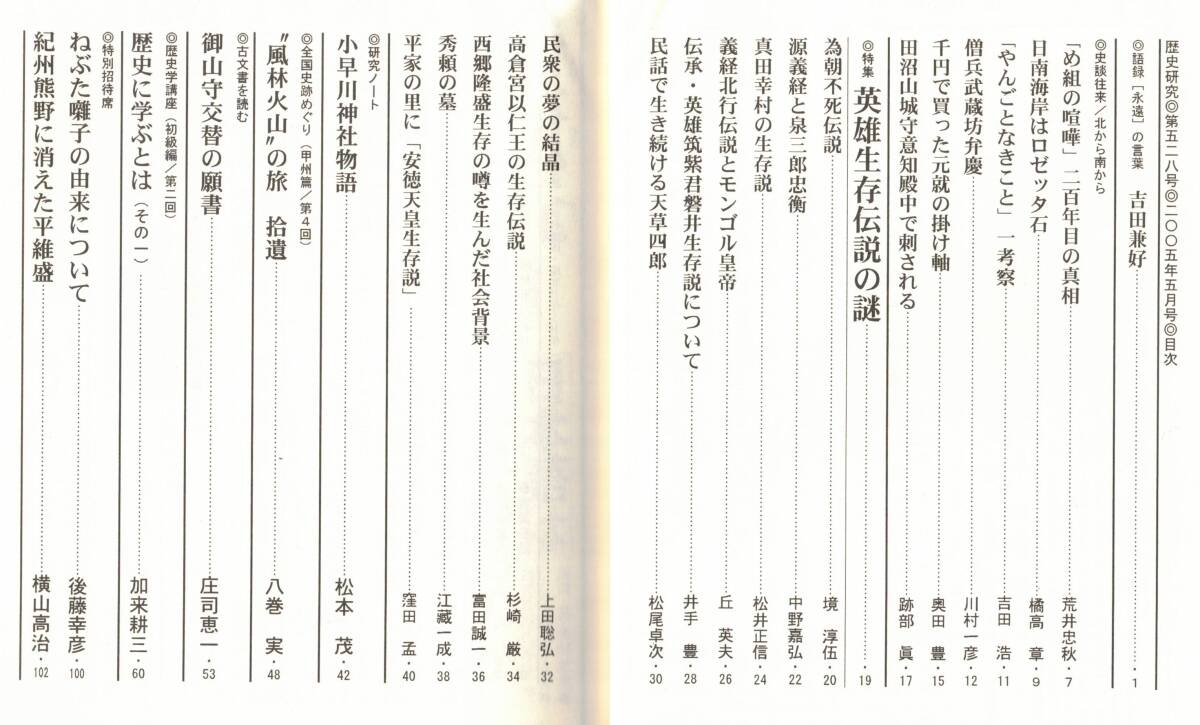 歴史研究◎第五二八号◎二〇〇五年五月号◎目次
◎語録［永遠］の言葉　吉田兼好……1
◎史談往来／北から南から
「め組の喧嘩」二百年目の真相……荒井忠秋・7
日南海岸はロゼッタ石……橘高　章・9
「やんごとなきこと」一考察……吉田　浩・11
僧兵武蔵坊弁慶……川村一彦・12
千円で買った元就の掛け軸……奥田　豊・15
田沼山城守意知殿中で刺される……跡部　眞・17
◎特集　英雄生存伝説の謎……19
為朝不死伝説……境　淳伍・20
源義経と泉三郎忠衡……中野嘉弘・22
真田幸村の生存説……松井正信・24
義経北行伝説とモンゴル皇帝……丘　英夫・26
伝承・英雄筑紫君磐井生存説について……井手　豊・28
民話で生き続ける天草四郎……松尾卓次・30
民衆の夢の結晶……上田聡弘・32
高倉宮以仁王の生存伝説……杉崎　巌・34
西郷隆盛生存の噂を生んだ社会背景……富田誠一・36
秀頼の墓……江藏一成・38
平家の里に「安徳天皇生存説」……窪田　孟・40
◎研究ノート
小早川神社物語……松本　茂・42
◎全国史跡めぐり（甲州篇／第４回）
〝風林火山〟の旅　拾遺……八巻　実・48
◎古文書を読む
御山守交替の願書……庄司恵一・53
◎歴史学講座（初級編／第二回）
歴史に学ぶとは（その一）……加来耕三・60
◎特別招待席
ねぶた囃子の由来について……後藤幸彦・100
紀州熊野に消えた平維盛……横山高治・102